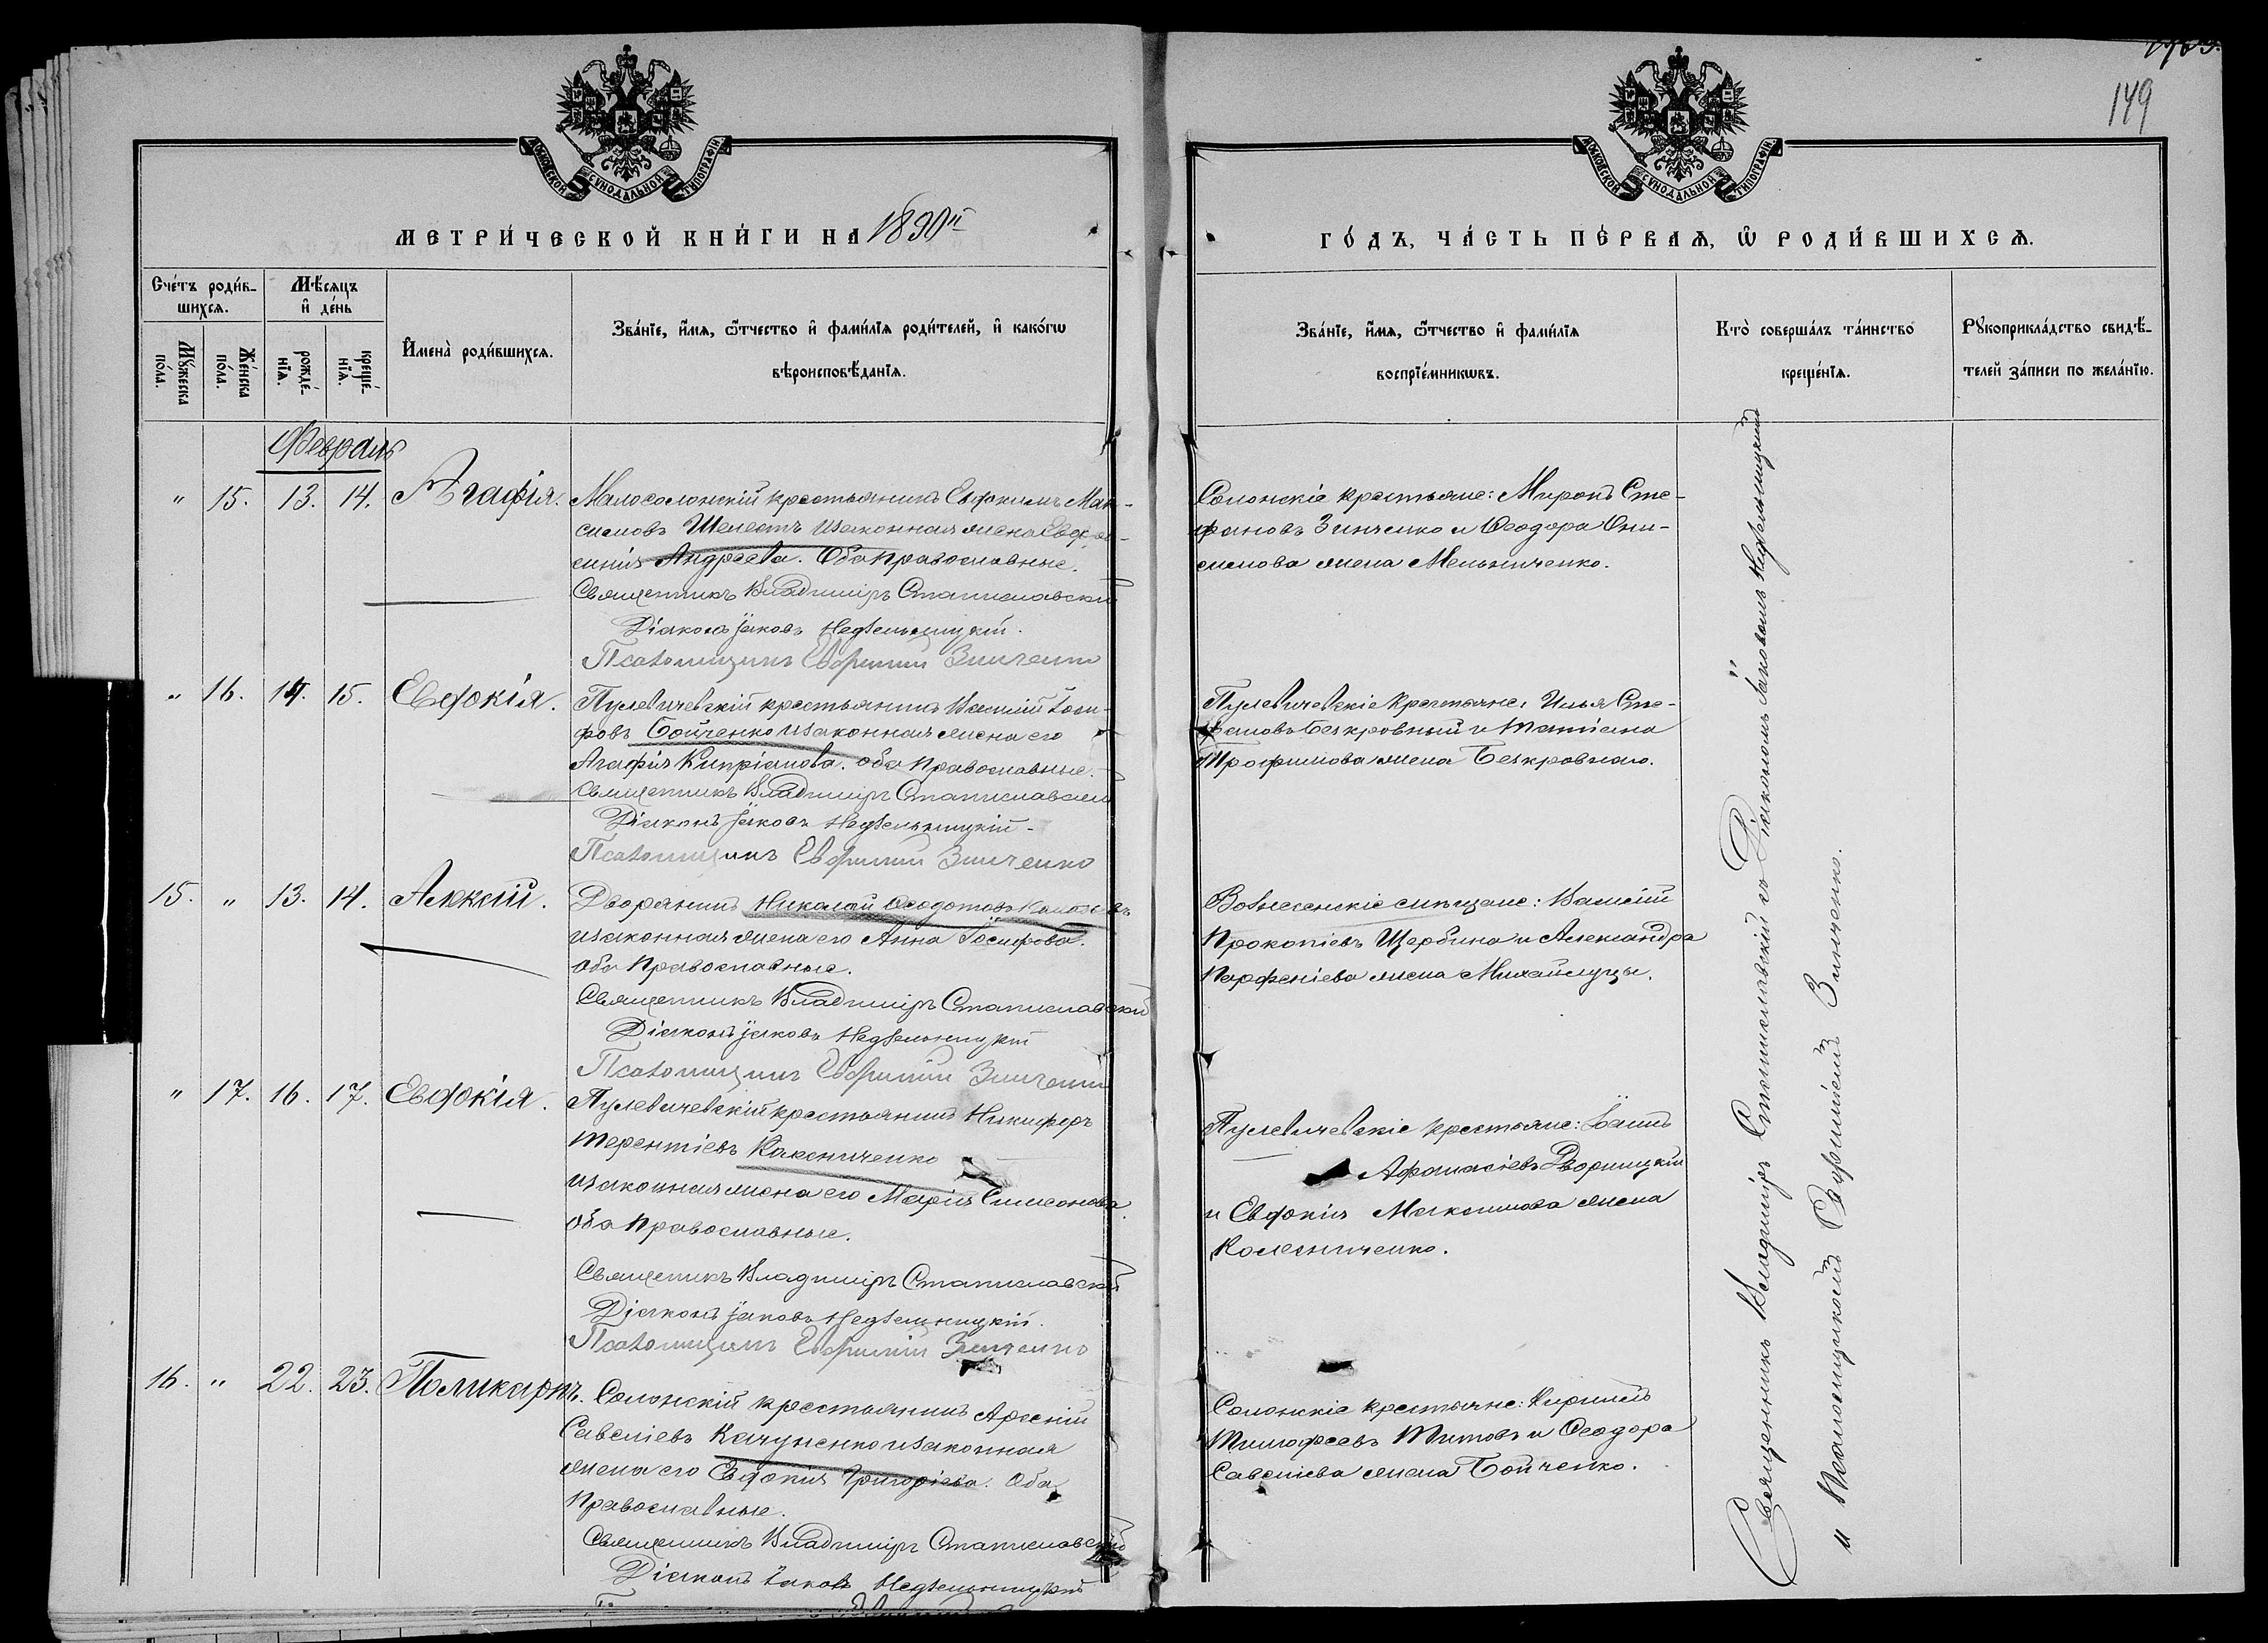 149
МОСКОВСКОЙ СѴНОДАЛЬНОЙ ТИПОГРАФІИ
МОСКОВСКОЙ СѴНОДАЛЬНОЙ ТИПОГРАФІИ
МЕТРИ́ЧЕСКОЙ КНИ́ГИ НА 1890й
ГО́ДЪ, ЧА́СТЬ ПЕ́РВАѦ, Ѿ РОДИ́ВШИХСѦ.
Сче́тъ роди́в-
шихсѧ.
Мѣ́сѧцъ
и҆ де́нь
Мꙋ́жеска
по́ла.
Же́нска
по́ла.
рожде́-
нїѧ.
креще́-
нїѧ.
И҆мена̀ роди́вшихсѧ.
Зва́нїе, и҆́мѧ, ѻ҆́тчество и҆ фами́лїѧ роди́телей, и҆ како́гѡ
вѣроисповѣ́данїѧ.
Зва́нїе, и҆́мѧ, ѻ҆́тчество и҆ фами́лїѧ
воспрїе́мникѡвъ.
Кто̀ соверша́лъ та́инство
креще́нїѧ.
Рꙋкоприкла́дство свидѣ́-
телей за́писи по жела́нїю.
Февраль
" 15. 13. 14. Агафія.
Малосолонскій крестьянинъ Евфимъ Мак-
симовъ Шелестъ и законная жена Евфро-
синія Андреева. Оба православные.
Священникъ Владиміръ Станиславскій
Діаконъ Іаковъ Недѣльницкій.
Псаломщикъ Евфимій Зинченко
Солонскіе крестьяне: Миронъ Сте-
фановъ Зинченко и Ѳеодора Они-
симова жена Мельниченко.
" 16. 14. 15. Евдокія.
Пулевичевскій крестьянинъ Василій Іоси-
фовъ Бойченко и законная жена его
Агафія Кипріанова. оба православные.
Священникъ Владиміръ Станиславскій
Діаконъ Іаковъ Недѣльницкій.
Псаломщикъ Евфимій Зинченко
Пулевичевскіе крестьяне, Илья Сте-
фановъ Безкровный и Татіана
Трофимова жена Безкровнаго.
15. " 13. 14. Алексій.
Дворянинъ Николай Ѳеодотовъ
и законная жена его Анна Іосифова.
оба православные.
Священникъ Владиміръ Станиславскій
Діаконъ Іаковъ Недѣльницкій
Псаломщикъ Евфимій Зинченко
Вознесенскіе мѣщане: Василій
Прокопіевъ Щербина и Александра
Парфеніева жена Михайлуцы.
" 17. 16. 17. Евдокія.
Пулевичевскій крестьянинъ Никифоръ
Терентіевъ
и законная жена его Марія Симеонова.
оба православные.
Священникъ Владиміръ Станиславскій
Діаконъ Іаковъ Недѣльницкій.
Псаломщикъ Евфимій Зинченко
Пулевичевскіе крестьяне: Іоаннъ
Афанасіевъ Дворницкій
и Евдокія Максимова жена
Колесниченко.
16. " 22. 23. Поликарпъ.
Солонскій крестьянинъ Арсеній
Савеліевъ Качуненко и законная
жена его Евдокія Григоріева. Оба
православные.
Священникъ Владиміръ Станиславскій
Діаконъ Іаковъ Недѣльницкій
Солонскіе крестьяне: Кириллъ
Тимофеевъ Титовъ и Ѳеодора
Савеліева жена Бойченко.
Священникъ Владиміръ Станиславскій съ Діакономъ Іаковомъ Недѣльницкимъ
и Псаломщикомъ Евфиміемъ Зинченко.